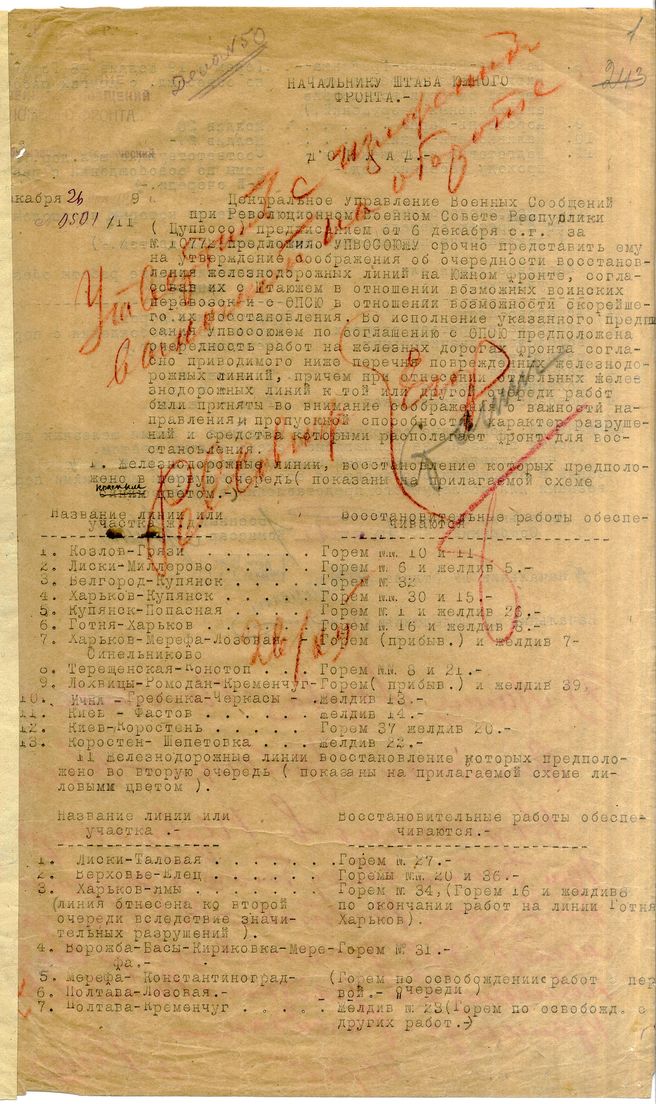 1
Дело № 50
243
НАЧАЛЬНИКУ ШТАБА ЮЖНОГО
ФРОНТА.-
ДОКЛАД.-
кабря 26 9
№ 0501/11
Центральное Управление Военных Сообщений
при Революционном Военном Совете Республики
( Цупвосо) предписанием от 6 декабря с.г. за
№ 10772 предложило УПВОСОЮЖУ срочно представить ему
на утверждение соображения об очередности восстанов-
ления железнодорожных линий на Южном фронте, согла-
совав их с Наштаюжем в отношении возможных воинских
перевозок и с ОПСЮ в отношении возможности скорейше-
го их восстановления. Во исполнение указанного предпи
сания Упвосоюжем по соглашению с ОПСЮ предположена
очередность работ на железных дорогах фронта согла-
сно приводимого ниже перечня поврежденных железнодо-
рожных линий, причем при отнесении отдельных желез
знодорожных линий к той или другой очереди работ
были приняты во внимание соображения о важности на-
правления и пропускной способности, характер разруше-
ний и средства которыми располагает фронт для вос-
становления.
1. Железнодорожные линии, восстановление которых предполо-
жено в первую очередь( показаны на прилагаемой схеме
синим цветом.-)
Название линии или Восстановительные работы обеспе-
участка ж.д. чиваются
1. Козлов-Грязи . . . . . . Горем №№ 10 и 11
2. Лиски-Миллерово . . . . . Горем № 6 и желдив 5.-
3. Белгород-Купянск . . . . . Горем № 32
4. Харьков-Купянск . . . . . Горем №№ 30 и 15.-
5. Купянск-Попасная . . . . . Горем № 1 и желдив 26.-
6. Готня-Харьков . . . . . . Горем № 16 и желдив 8.-
7. Харьков-Мерефа-Лозовая - . Горем (прибыв.) и желдив 7-
Синельниково
8. Терещенская-Конотоп . . . Горем №№ 8 и 21.-
9. Лохвицы-Ромодан-Кременчуг-Горем( прибыв.) и желдив 39,
10. Ичня -Гребенка-Черкасы - . желдив 13.-
11. Киев - Фастов . . . . . желдив 14.-
12. Киев-Коростень . . . . . Горем 37 желдив 20.-
13. Коростен- Шепетовка . . . желдив 22.-
11 Железнодорожные линии восстановление которых предполо-
жено во вторую очередь ( показаны на прилагаемой схеме ли-
ловымм цветом ).
Название линии или Восстановительные работы обеспе-
участка .- чиваются.-
1. Лиски-Таловая . . . . . . .Горем № 27.-
2. Верховье-Елец . . . . . . .Горемы №№ 20 и 36.-
3. Харьков-Ямы . . . . . . Горем № 34,(Горем 16 и желдив8
(линия отнесена ко второй по окончании работ на линии Готня
очереди вследствие значи- Харьков).
тельных разрушений ).
4. Ворожба-Басы-Кириковка-Мере-Горем № 31.-
фа.-
5. Мерефа- Константиноград- (Горем по освобождении с работ пер
6. Полтава-Лозовая.- вой.- очереди )
7. Полтава-Кременчуг . . . . . желдив № 23(Горем по освобожд. с
других работ.-)
Утверждаю с изложенным
на обороте
Реввоенсовет
26/XII